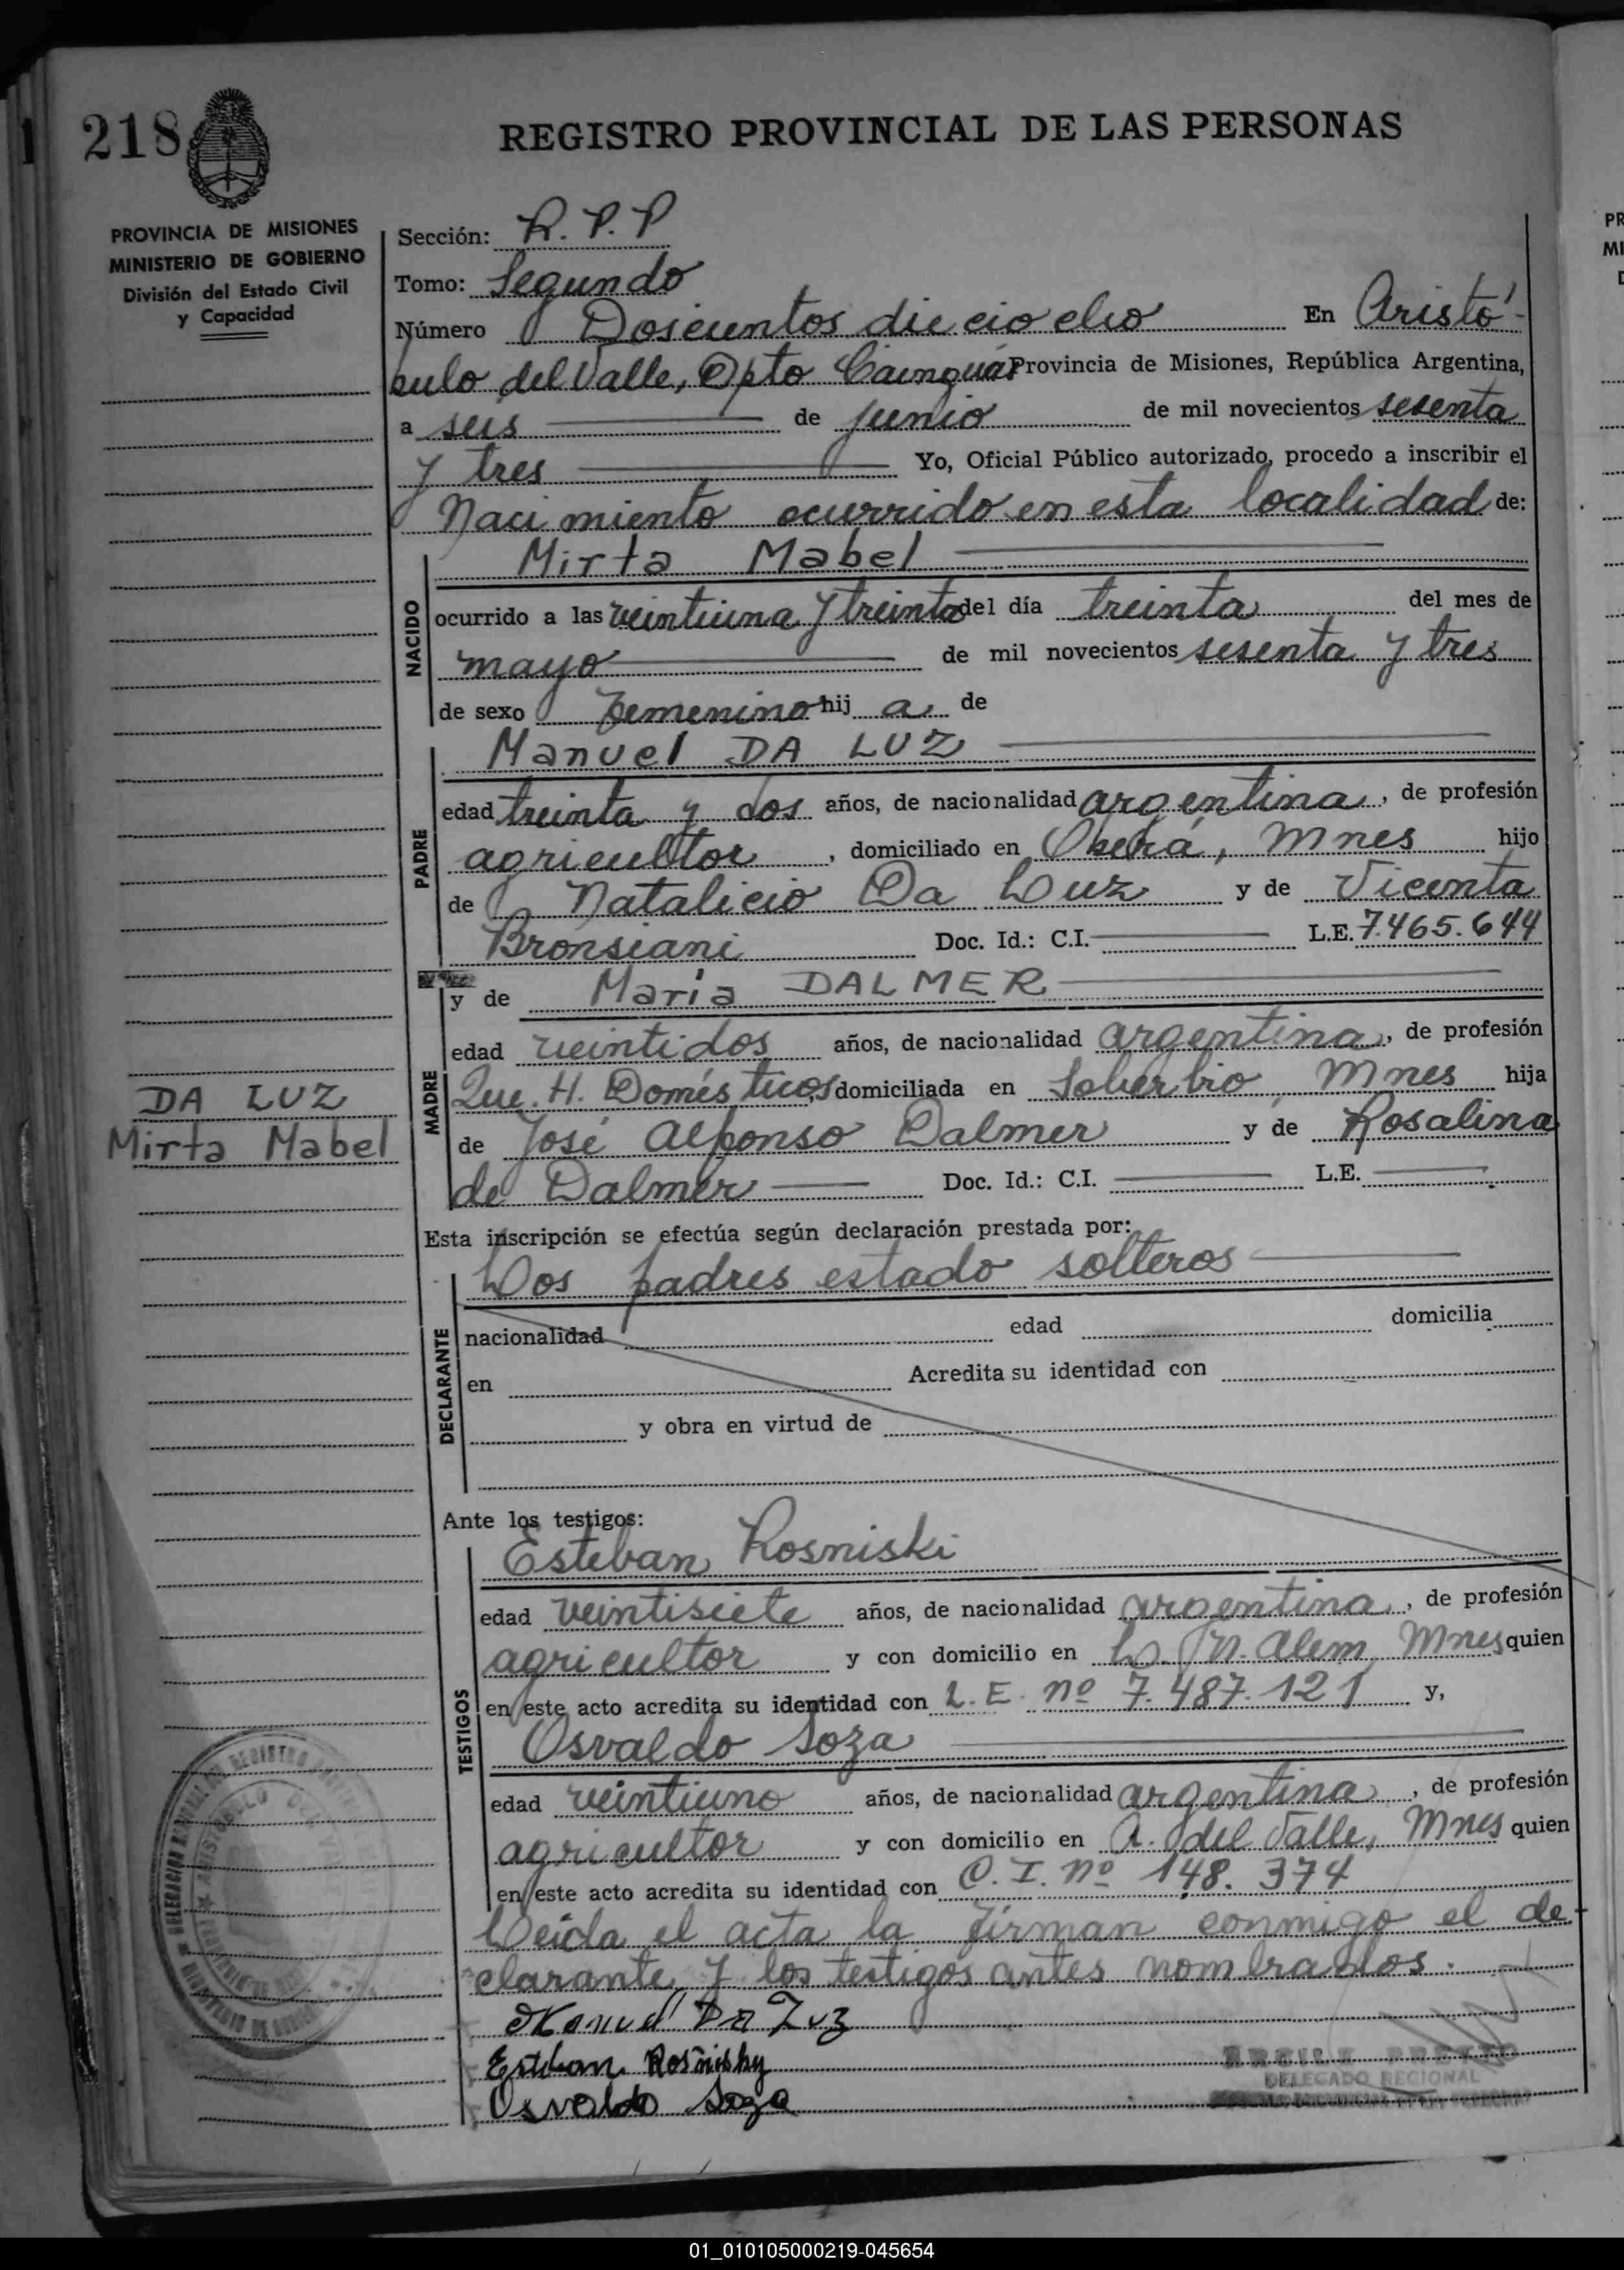 218
REGISTRO PROVINCIAL DE LAS PERSONAS
PROVINCIA DE MISIONES
MINISTERIO DE GOBIERNO
División del Estado Civil
y Capacidad
Sección: R. P. P
Tomo: Segundo
Número Doscientos dieciocho En Aristó-
bulo del Valle, Dpto Cainguás Provincia de Misiones, República Argentina,
a seis de junio de mil novecientos sesenta
y tres Yo, Oficial Público autorizado, procedo a inscribir el
Nacimiento ocurrido en esta localidad de:
Mirta Mabel
NACIDO
ocurrido a las veintiuna y treinta del día treinta del mes de
mayo de mil novecientos sesenta y tres
de sexo femenino hij a de
Manuel DA LUZ
PADRE
edad treinta y dos años, de nacionalidad argentina, de profesión
agricultor, domiciliado en Oberá, Mnes hijo
de Natalicio Da Luz y de Vicenta
Bronsiani Doc. Id.: C.I. L.E. 7.465.644
y de Maria DALMER
MADRE
edad veintidos años, de nacionalidad argentina, de profesión
Que. H. Domésticos domiciliada en Soberbio, Mnes hija
de José Alfonso Dalmer y de Rosalina
de Dalmer Doc. Id.: C.I. L.E.
DA LUZ
Mirta Mabel
Esta inscripción se efectúa según declaración prestada por:
Los padres estado solteros
DECLARANTE
nacionalidad edad domicilia
en Acredita su identidad con
y obra en virtud de
Ante los testigos:
Esteban Rosniski
TESTIGOS
edad veintisiete años, de nacionalidad argentina, de profesión
agricultor y con domicilio en L. N. Alem, Mnes quien
en este acto acredita su identidad con L. E. nº 7.487.121 y,
Osvaldo Soza
edad veintiuno años, de nacionalidad argentina, de profesión
agricultor y con domicilio en A. del Valle, Mnes quien
en este acto acredita su identidad con C. I. nº 148.374
Leída el acta la firman conmigo el de-
clarante y los testigos antes nombrados.
Manuel Da Luz
Esteban Rosnisky
Osvaldo Soza
DELEGADO REGIONAL
01_010105000219-045654